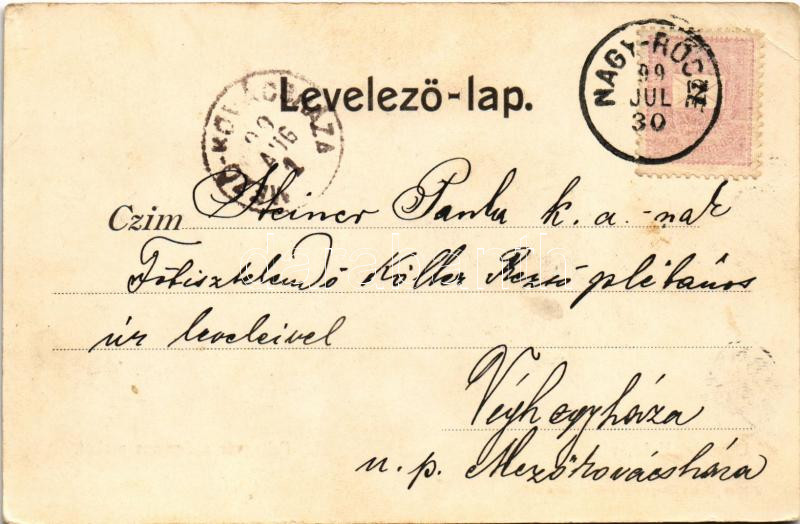 Levelező-lap.
NAGY-RŐCZE
99
JUL
30
99
AUG
1
Czim Steiner Panka k. a. -nak
Főtisztelendő Költer Rezső plébános
úr leveleivel
Véghegyháza
u. p. Mezőkovácsháza